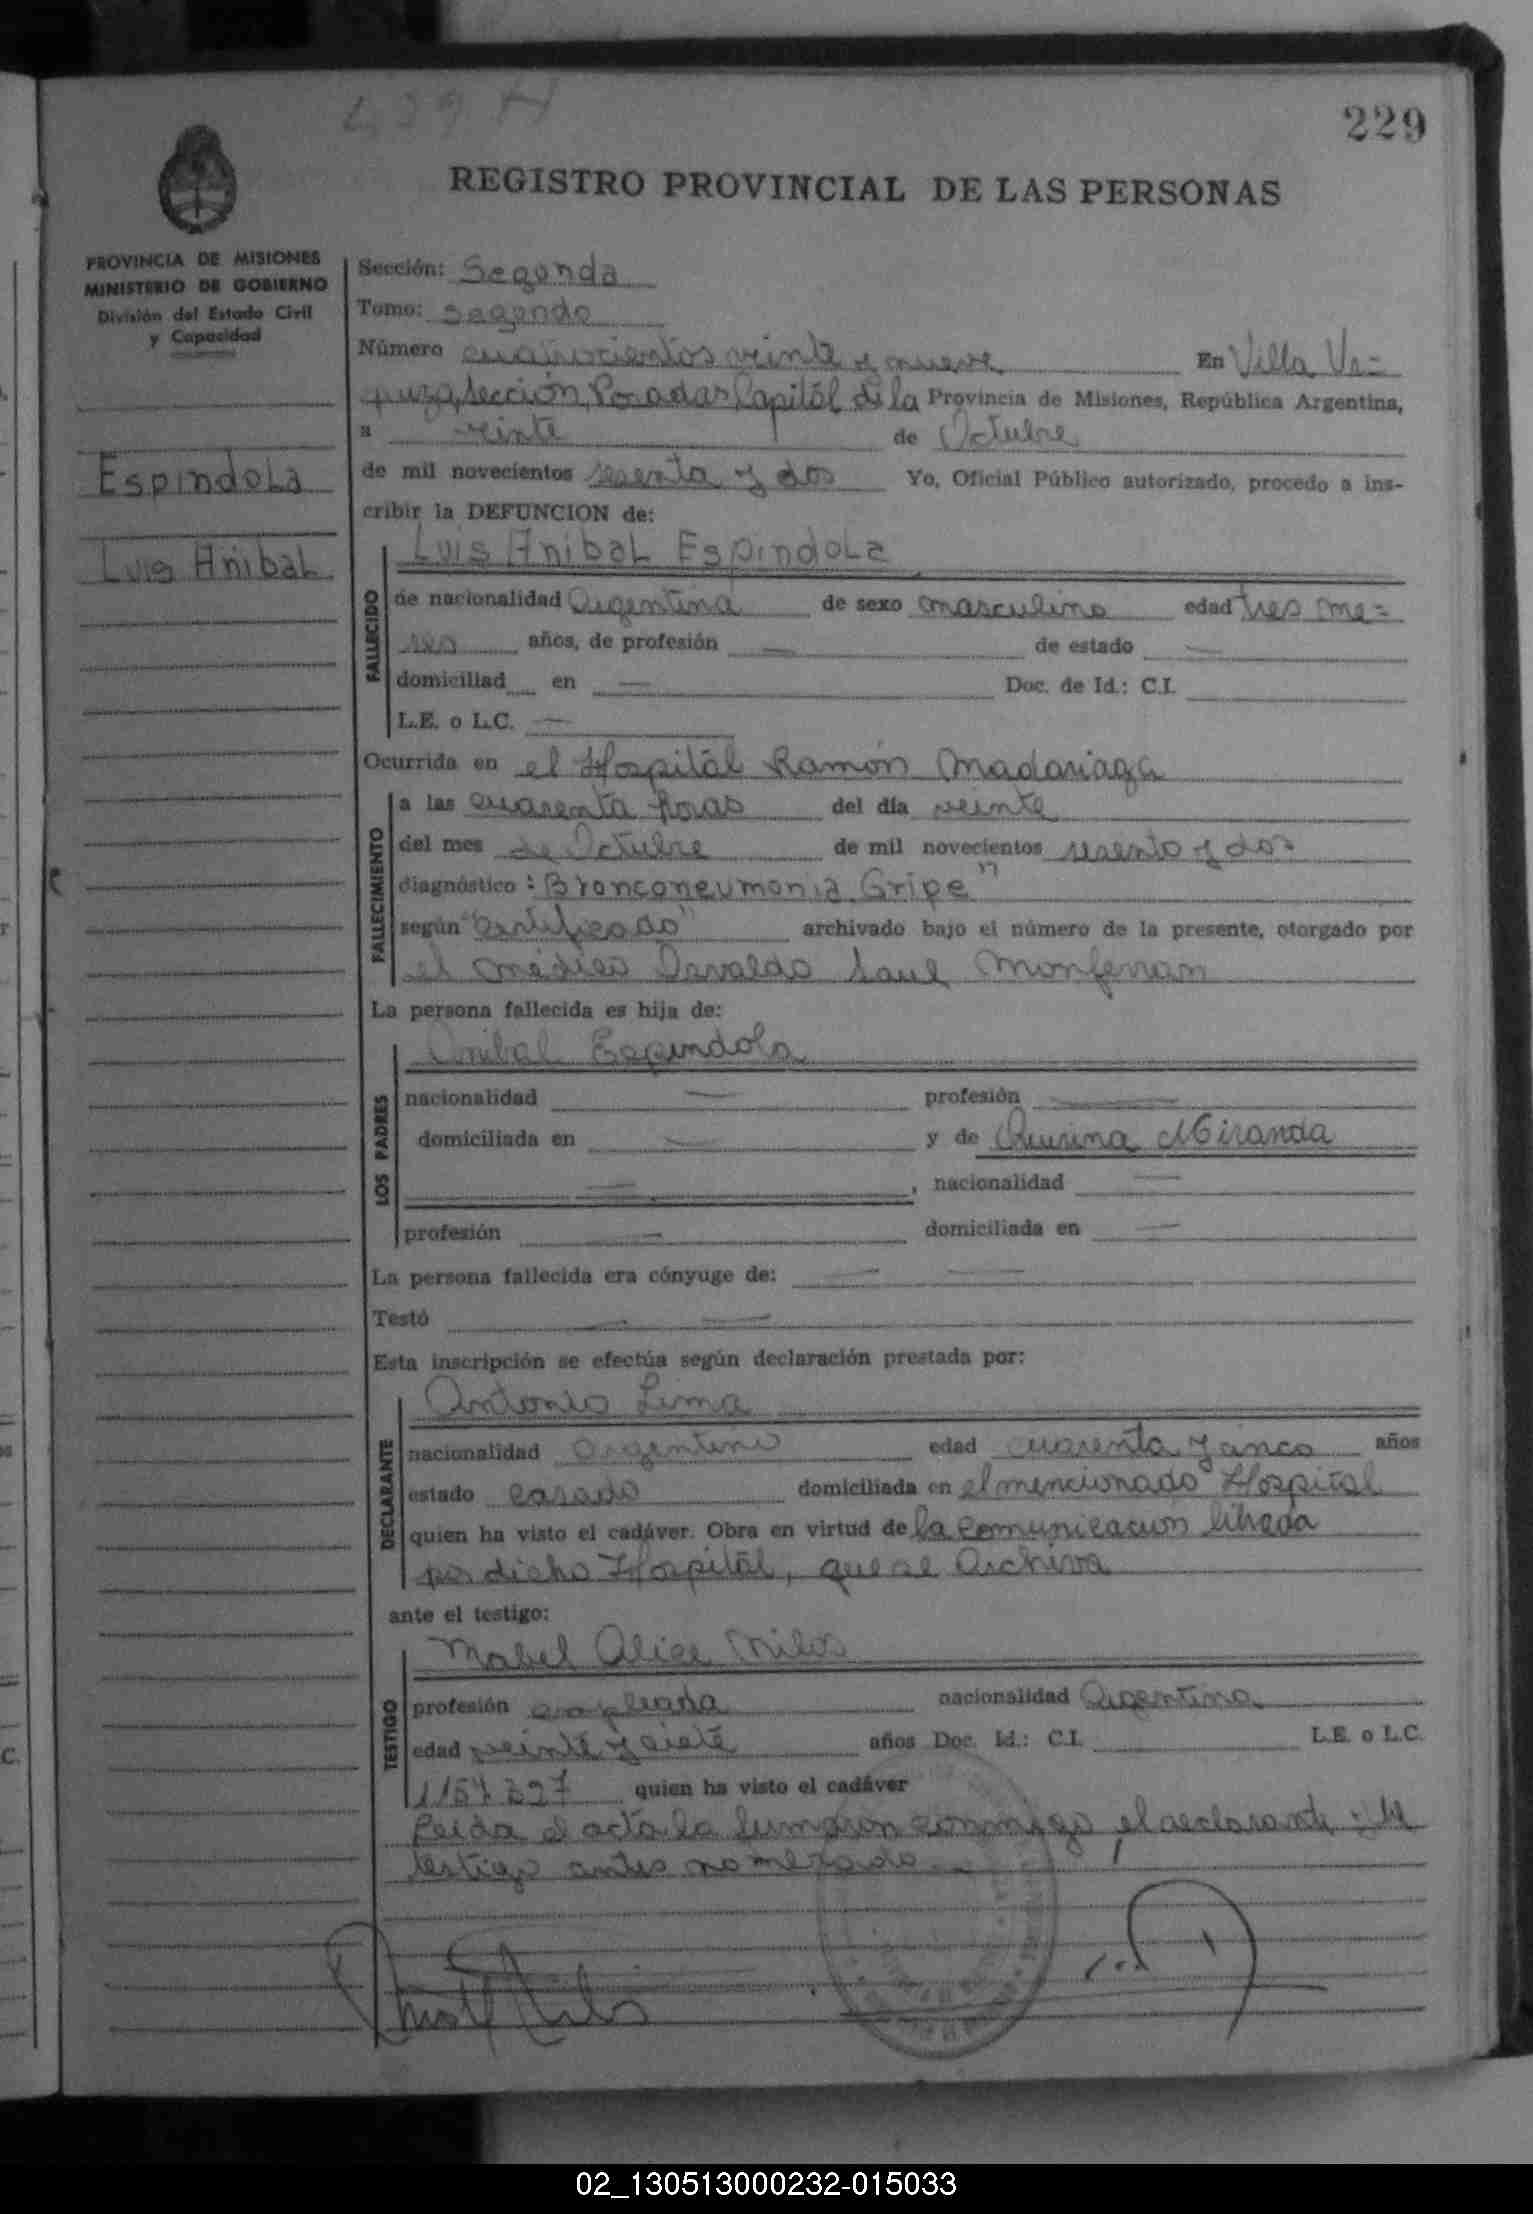 229
REGISTRO PROVINCIAL DE LAS PERSONAS
PROVINCIA DE MISIONES
MINISTERIO DE GOBIERNO
División del Estado Civil
y Capacidad
Espindola
Luis Anibal
Sección: Segunda
Tomo: segundo
Número cuatrocientos veinte y nueve En Villa
Sección, Posadas, Capitál de la Provincia de Misiones, República Argentina,
a veinte de Octubre
de mil novecientos sesenta y dos Yo, Oficial Público autorizado, procedo a ins-
cribir la DEFUNCION de:
FALLECIDO
Luis Anibal Espindola
de nacionalidad Argentina de sexo masculino edad tres me=
ses años, de profesión — de estado —
domiciliad en — Doc. de Id.: C.I.
L.E. o L.C. —
Ocurrida en el Hospitál Ramón Madariaga
FALLECIMIENTO
a las cuarenta horas del día veinte
del mes de Octubre de mil novecientos sesenta y dos
diagnóstico : Bronconeumonia Gripe"
según "Certificado" archivado bajo el número de la presente, otorgado por
el médico Osvaldo Saul Monferran
La persona fallecida es hija de:
LOS PADRES
Anibal Espindola
nacionalidad — profesión —
domiciliada en — y de Miranda
— , nacionalidad —
profesión — domiciliada en —
La persona fallecida era cónyuge de: — —
Testó — —
Esta inscripción se efectúa según declaración prestada por:
DECLARANTE
Antonio Lima
nacionalidad argentino edad cuarenta y cinco años
estado casado domiciliada en el mencionado Hospital
quien ha visto el cadáver. Obra en virtud de la comunicacion librada
por dicho Hospitál, que se Archiva
ante el testigo:
TESTIGO
Mabel Alice Milos
profesión empleada nacionalidad Argentina
edad veinte y siete años Doc. Id.: C.I. L.E. o L.C.
1157327 quien ha visto el cadáver
Leida el acta la firmaron conmigo, el declarante y el
testigo antes nomerado
02_130513000232-015033